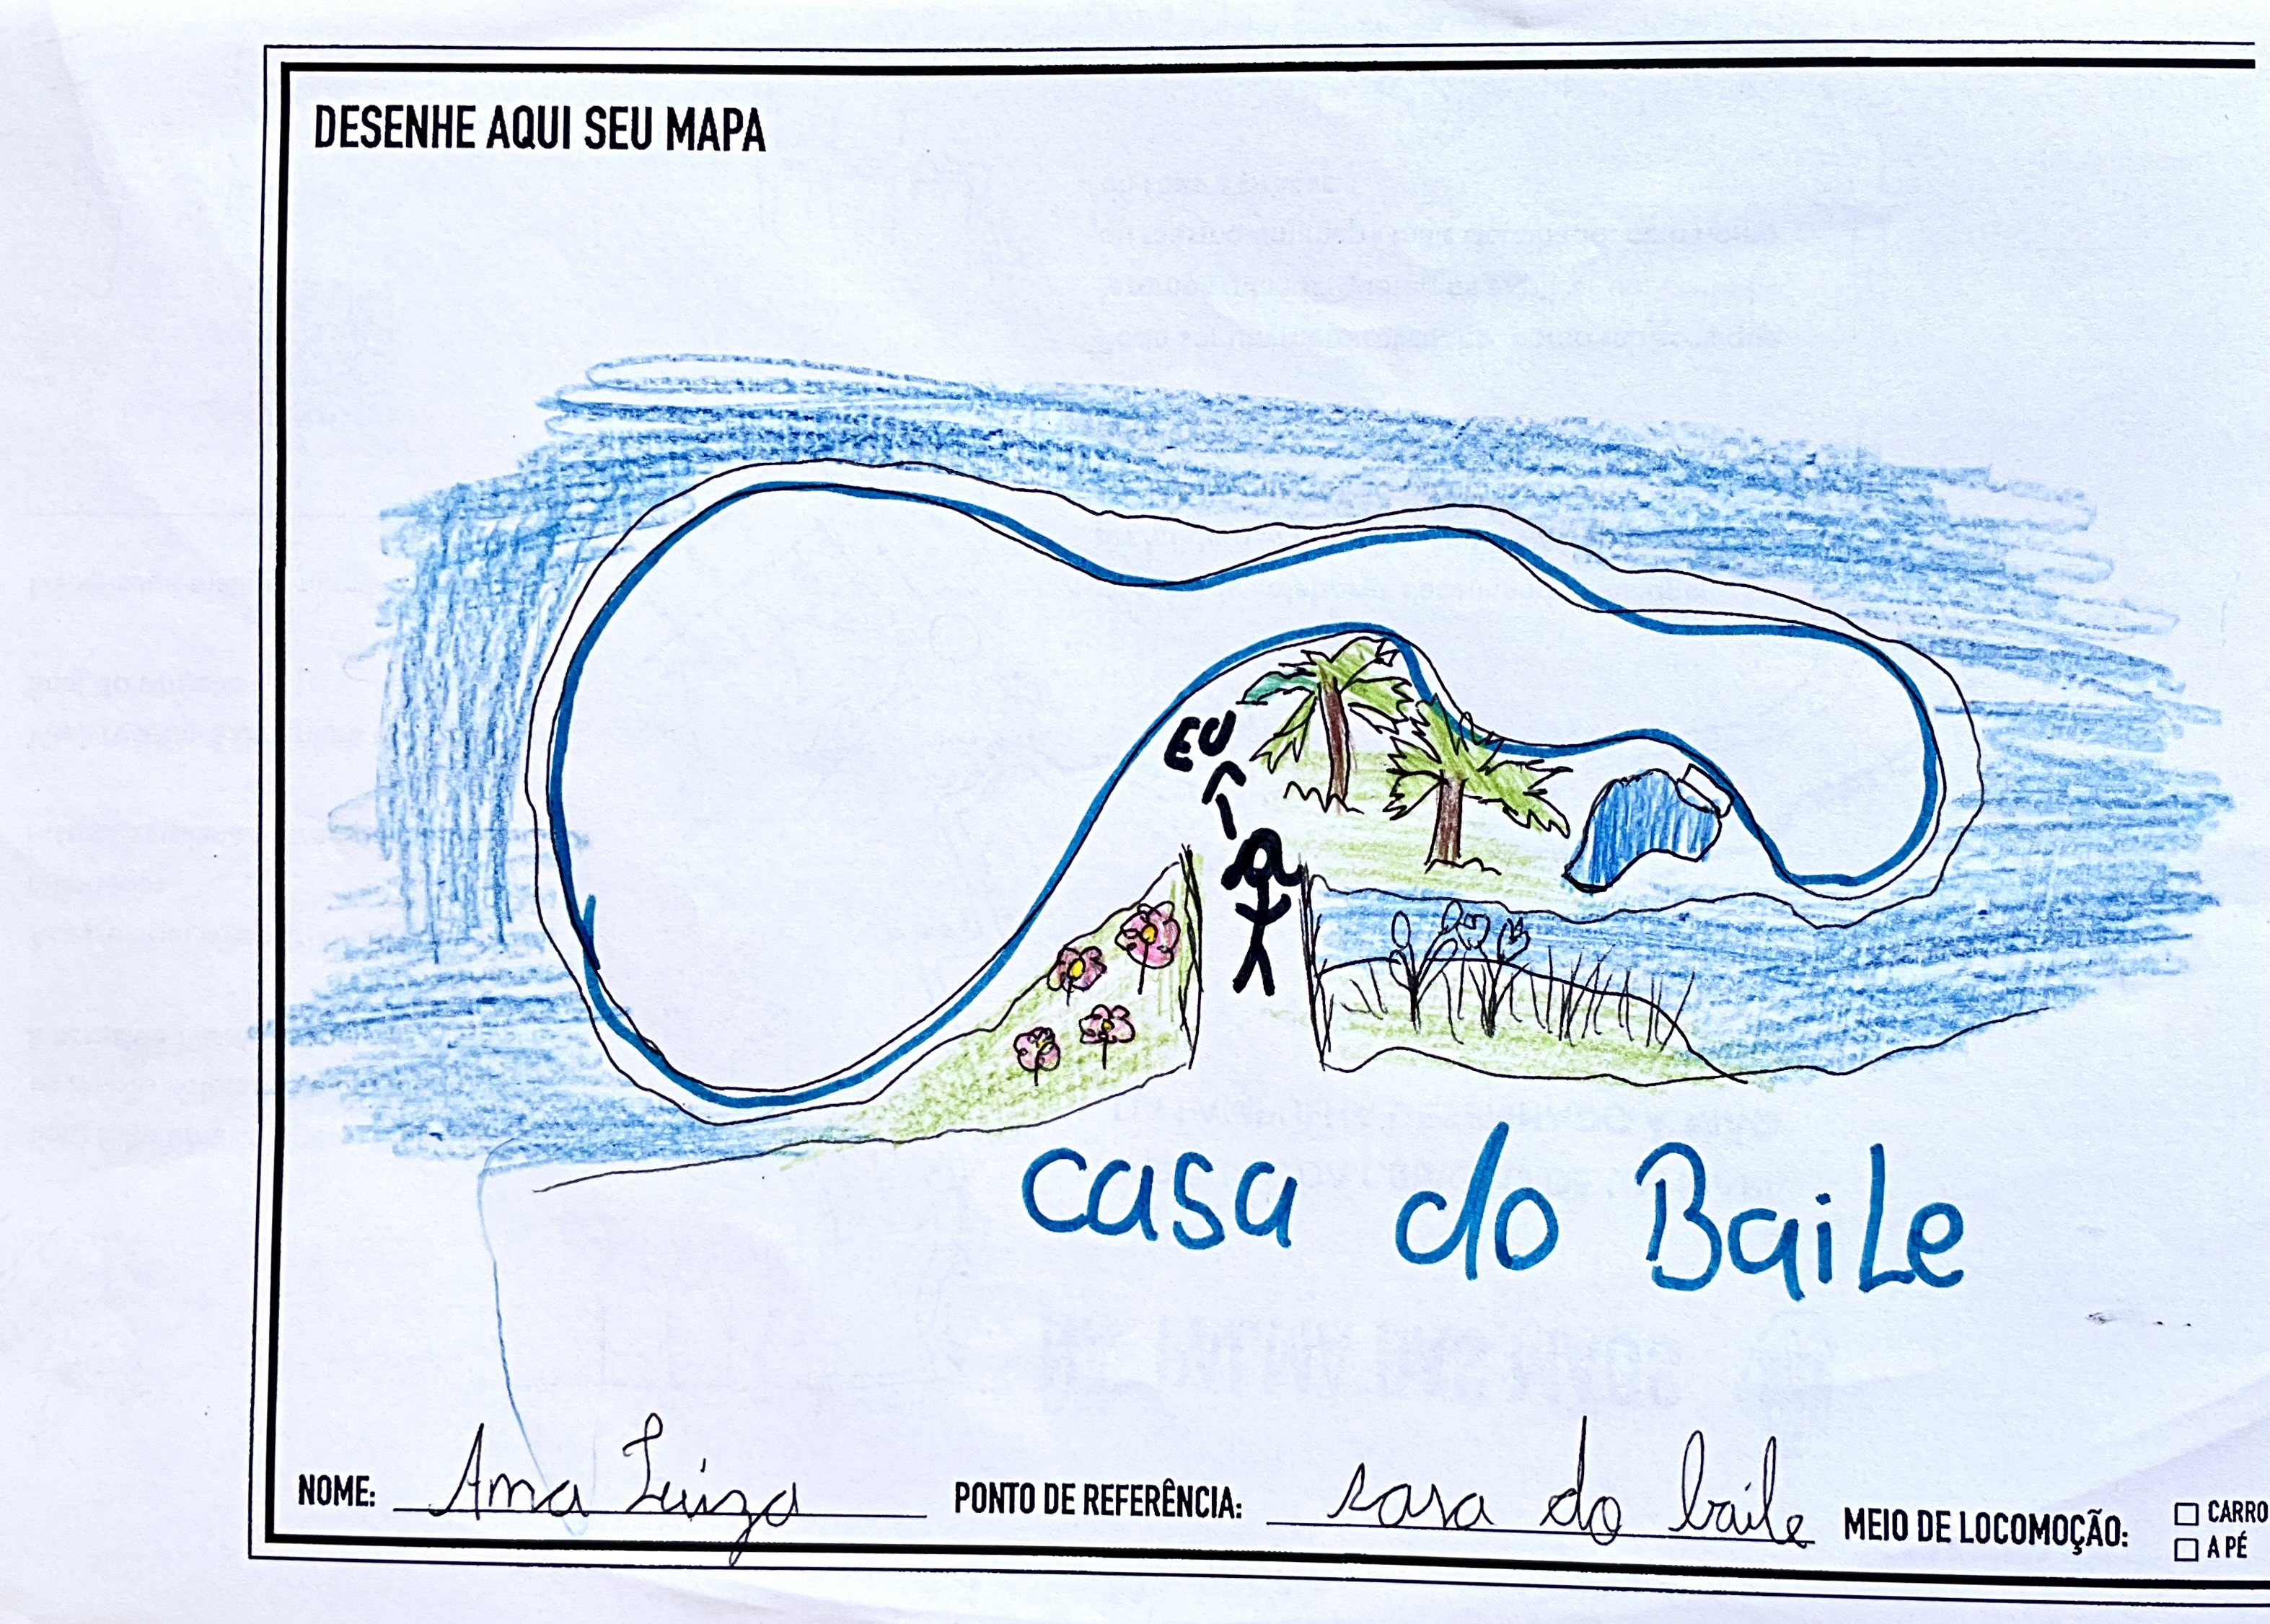 DESENHE AQUI SEU MAPA
EU
casa do BaiLe
NOME: Ana Luiza PONTO DE REFERÊNCIA: casa do baile MEIO DE LOCOMOÇÃO: ☐ CARRO
☐ A PÉ